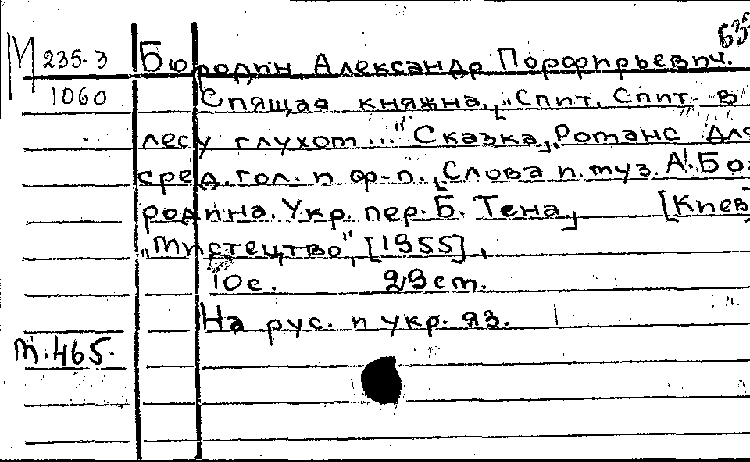 635
М 235-3
1060
Бородин Александр Порфирьевич.
Спящая княжна. „Спит, спит в
лесу глухом..." Сказка. Романс для
сред. гол. и ф-п. Слова и муз. А. Бо-
родина. Укр. пер. Б. Тена, [Киев]
„Мистецтво", [1955],
10с. 29см.
На рус. и укр. яз.
т.465.